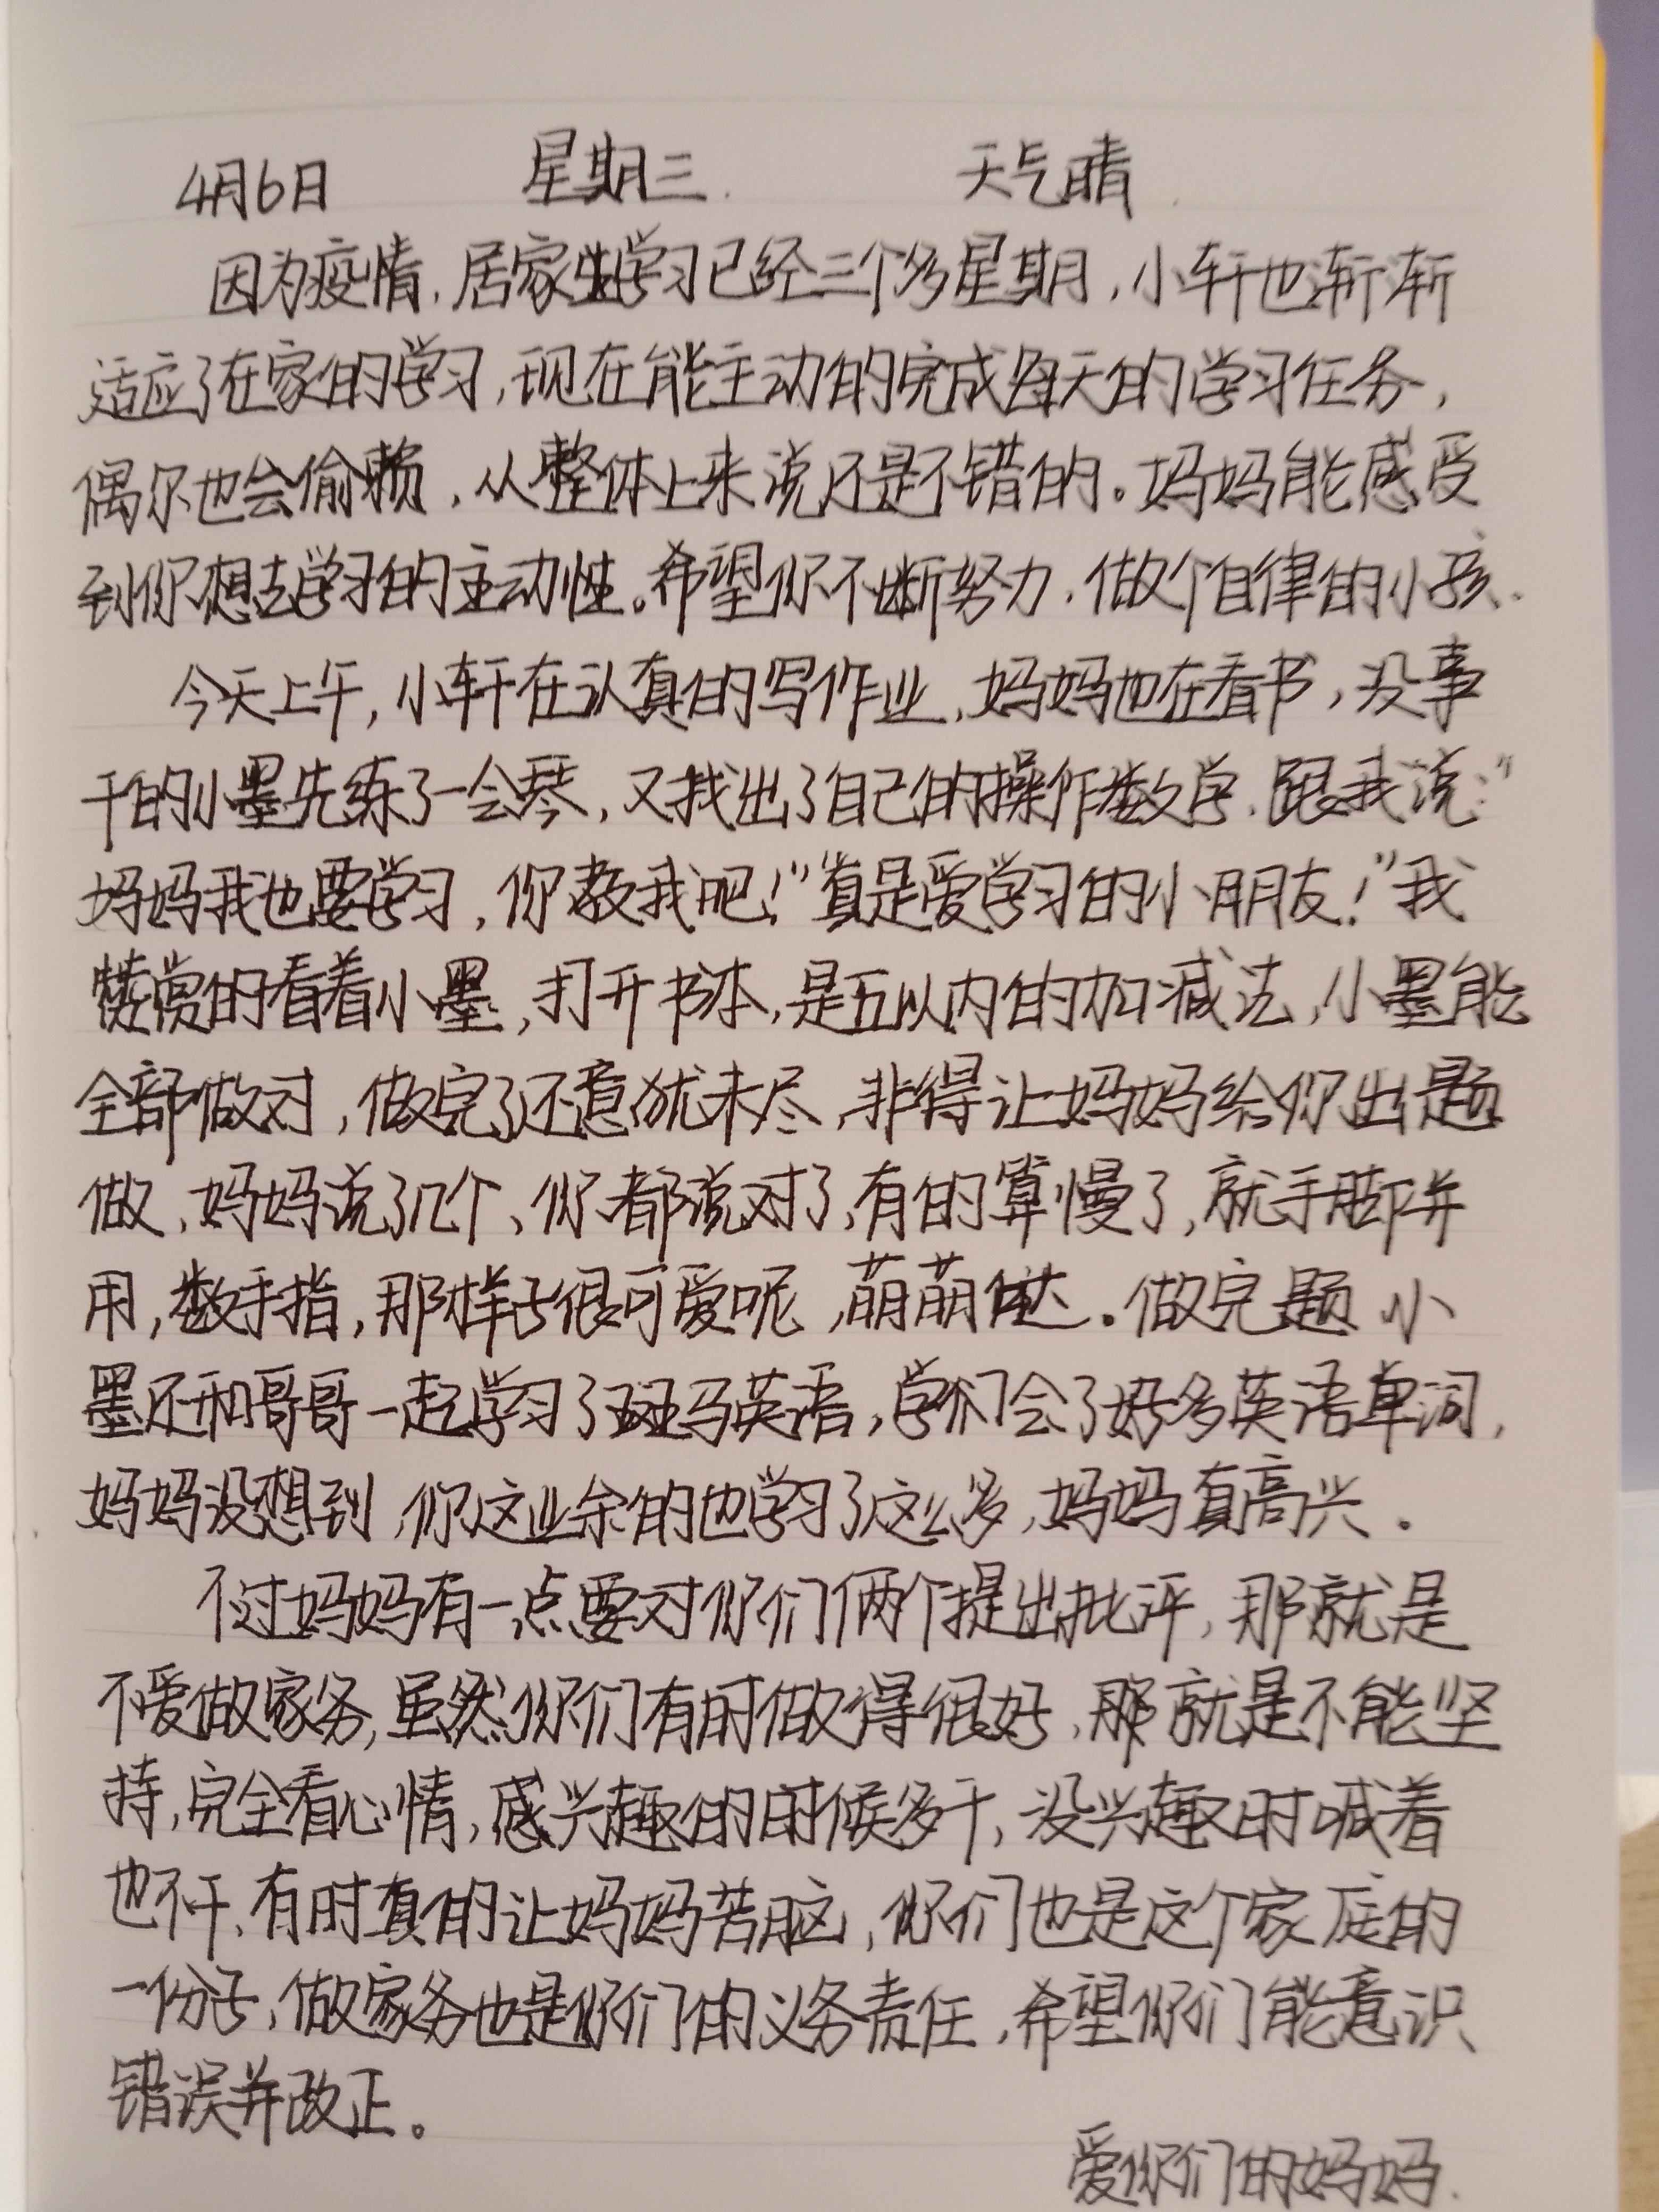 4月6日 星期三. 天气晴.
因为疫情,居家学习已经三个多星期,小轩也渐渐
适应了在家的学习,现在能主动的完成每天的学习任务,
偶尔也会偷懒,从整体上来说还是不错的。妈妈能感受
到你想去学习的主动性。希望你不断努力,做个自律的小孩.
今天上午,小轩在认真的写作业,妈妈也在看书,没事
干的小墨先练了一会琴,又找出了自己的操作数学.跟我说:"
妈妈我也要学习,你教我吧!""真是爱学习的小朋友!"我
赞赏的看着小墨,打开书本,是五以内的加减法,小墨能
全部做对,做完了还意犹未尽,非得让妈妈给你出题
做,妈妈说了几个,你都说对了,有的算慢了,就手脚并
用,数手指,那样子很可爱呢,萌萌哒。做完题 小
墨还和哥哥一起学习了斑马英语,学们会了好多英语单词,
妈妈没想到,你这业余的也学习了这么多,妈妈真高兴.
不过妈妈有一点要对你们俩个提出批评,那就是
不爱做家务,虽然你们有时做得很好,那就是不能坚
持,完全看心情,感兴趣的时候多干,没兴趣时喊着
也不干,有时真的让妈妈苦脑,你们也是这个家庭的
一份子,做家务也是你们的义务责任,希望你们能意识
错误并改正。
爱你们的妈妈.